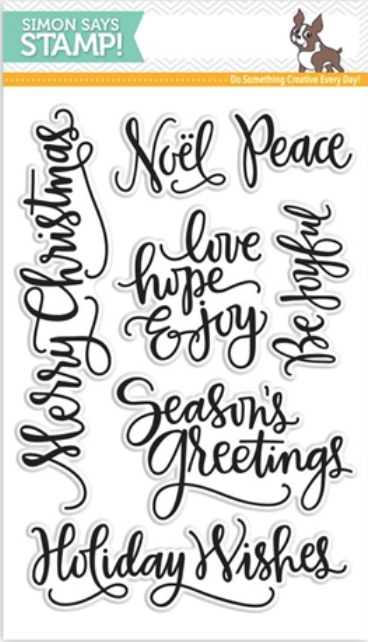 SIMON SAYS
STAMP!
Do Something Creative Every Day!
Merry Christmas
Noël
Peace
love
hope
& joy
Be Joyful
Season's
Greetings
Holiday Wishes